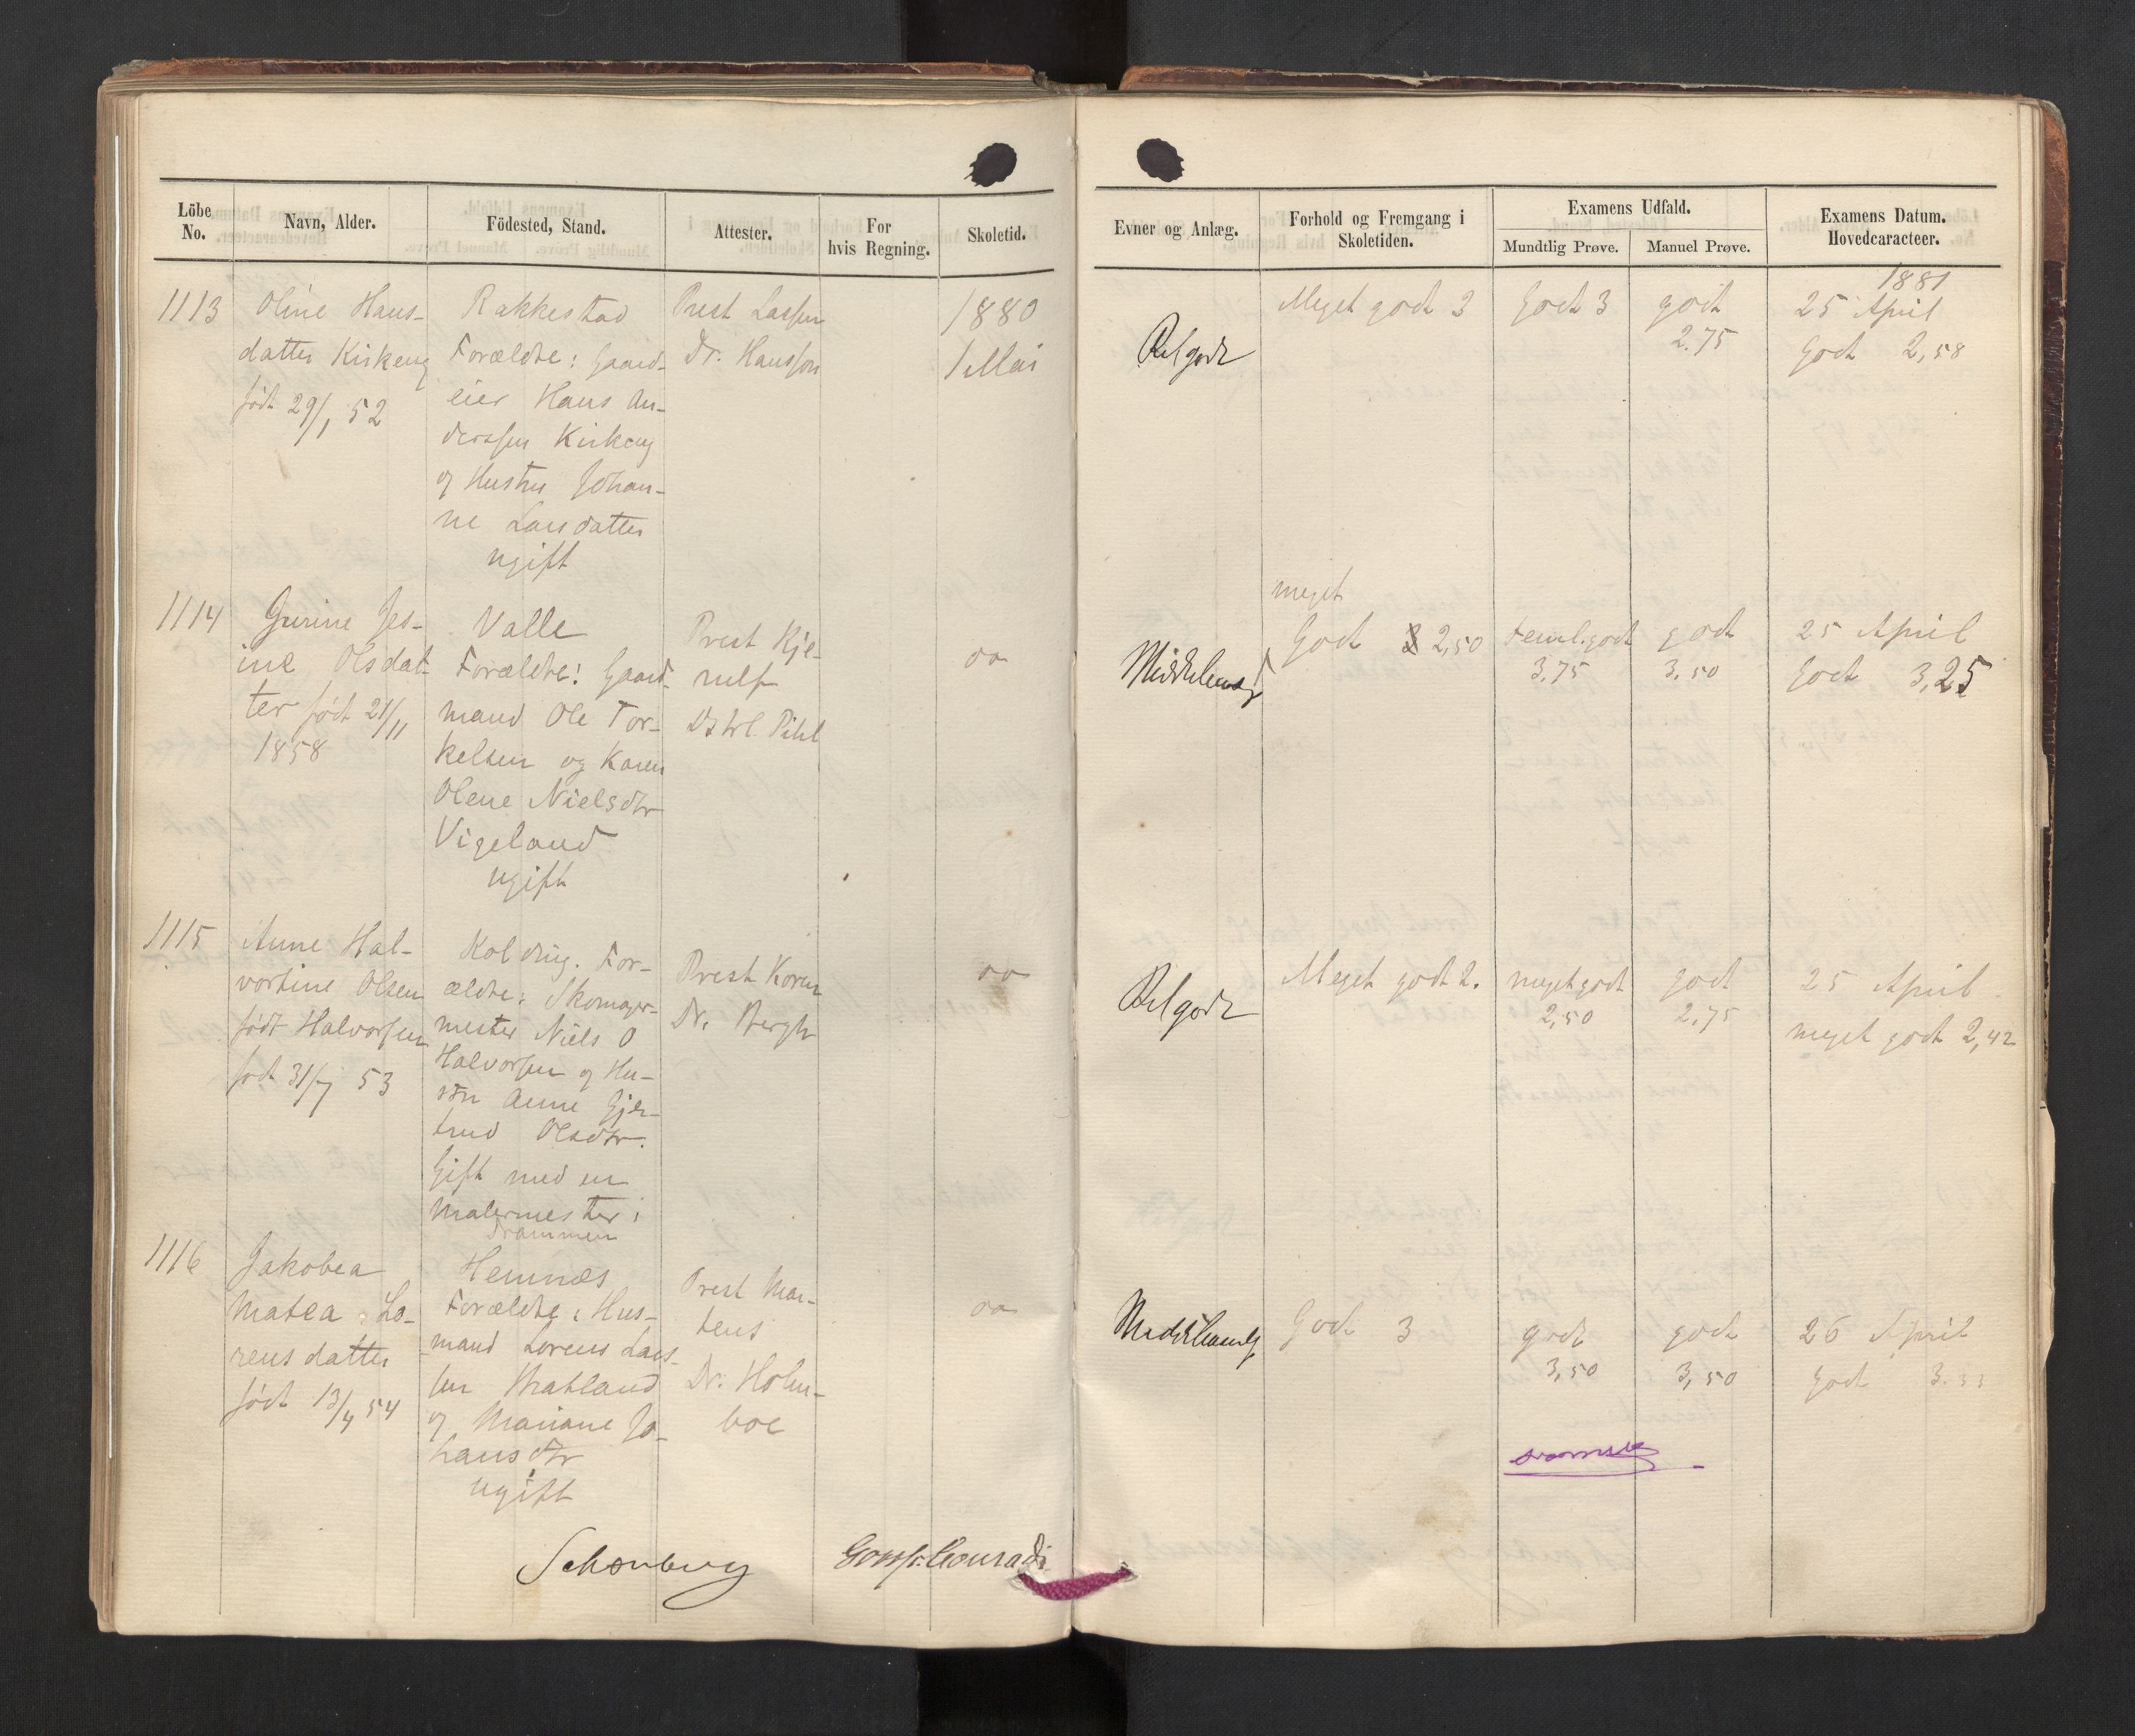 Löbe No.
Navn, Alder.
Födested, Stand.
Attester.
For hvis Regning.
Skoletid.
Evner og Anlæg.
Forhold og Fremgang i Skoletiden.
Examens Udfald.
Mundtlig Prøve.
Manuel Prøve.
Examens Datum. Hovedcaracteer.
1113
Oline Hans-
datter Kirkeng
født 29/1 52
Rakkestad
Forældre: Gaard-
eier Hans An-
derssen Kirkeng
og Hustru Johan-
ne Larsdatter
ugift
Prest Lassen
Dr. Hansson
1880
1 Mai
Rel godt
Meget godt 2
Godt 3
godt
2.75
1881
25 April
Godt 2,58
1114
Gurine Jes-
ine Olsdat-
ter født 21/11
1858
Valle
Forældre: Gaard-
mand Ole Tor-
kelsen og Karen
Olene Nielsdtr
Vigeland
ugift
Prest Kje-
rulf
Dstrl. Pihl
do
Middelmaadig
meget
Godt 2,50
Teml. godt
3,75
godt
3,50
25 April
Godt 3,25
1115
Anne Hal-
vorline Olsen
født Halvorsen
født 31/7 53
Kolding. For-
ældre: Skomager-
mester Niels O
Halvorsen og Hu-
stru Anne Gjer-
trud Olsdtr.
Gift med en
Malermester i
Drammen
Prest Koren
Dr. Bergh
do
Rel godt
Meget godt 2.
meget godt
2,50
godt
2,75
25 April
meget godt 2,42
1116
Jakobea
Matea Lo-
rensdatter
født 13/4 54
Hemnæs
Forældre: Hus-
mand Lorens Lars-
sen Matland
og Mariane Jo-
hansdtr
ugift
Prest Mar-
tens
Dr. Holm-
boe
do
Middelmaadig
Godt 3
godt
3,50
godt
3,50
26 April
Godt 3.33
Schønberg
Conradi